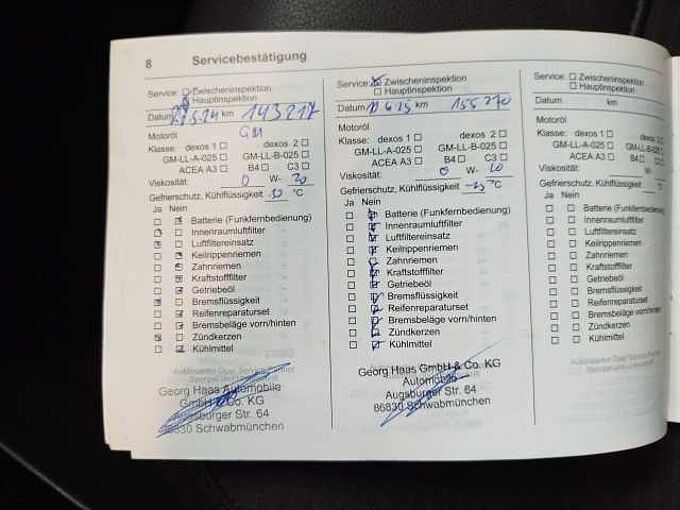 8 Servicebestätigung
Service: ☐ Zwischeninspektion
☒ Hauptinspektion
Datum 5.24 km 143217
Motoröl GM
Klasse: dexos 1 ☐ dexos 2 ☐
GM-LL-A-025 ☐ GM-LL-B-025 ☐
ACEA A3 ☐ B4 ☐ C3 ☐
Viskosität: 0 W- 30
Gefrierschutz, Kühlflüssigkeit °C
Ja Nein
Batterie (Funkfernbedienung)
Innenraumluftfilter
Luftfiltereinsatz
Keilrippenriemen
Zahnriemen
Kraftstofffilter
Getriebeöl
Bremsflüssigkeit
Reifenreparaturset
Bremsbeläge vorn/hinten
Zündkerzen
Kühlmittel
Georg Haas Automobile
GmbH & Co. KG
Augsburger Str. 64
86830 Schwabmünchen
Service: ☒ Zwischeninspektion
☐ Hauptinspektion
Datum 6 25 km 155270
Motoröl
Klasse: dexos 1 ☐ dexos 2 ☐
GM-LL-A-025 ☐ GM-LL-B-025 ☐
ACEA A3 ☐ B4 ☐ C3 ☐
Viskosität: 0 W-
Gefrierschutz, Kühlflüssigkeit °C
Ja Nein
Batterie (Funkfernbedienung)
Innenraumluftfilter
Luftfiltereinsatz
Keilrippenriemen
Zahnriemen
Kraftstofffilter
Getriebeöl
Bremsflüssigkeit
Reifenreparaturset
Bremsbeläge vorn/hinten
Zündkerzen
Kühlmittel
Georg Haas GmbH & Co. KG
Automobile
Augsburger Str. 64
86830 Schwabmünchen
Service: ☐ Zwischeninspektion
☐ Hauptinspektion
Datum km
Motoröl
Klasse: dexos 1 ☐ dexos 2 ☐
GM-LL-A-025 ☐ GM-LL-B-025 ☐
ACEA A3 ☐ B4 ☐ C3 ☐
Viskosität: W-
Gefrierschutz, Kühlflüssigkeit
Ja Nein
Batterie (Funkfernbedienung)
Innenraumluftfilter
Luftfiltereinsatz
Keilrippenriemen
Zahnriemen
Kraftstofffilter
Getriebeöl
Bremsflüssigkeit
Reifenreparaturset
Bremsbeläge vorn/hinten
Zündkerzen
Kühlmittel